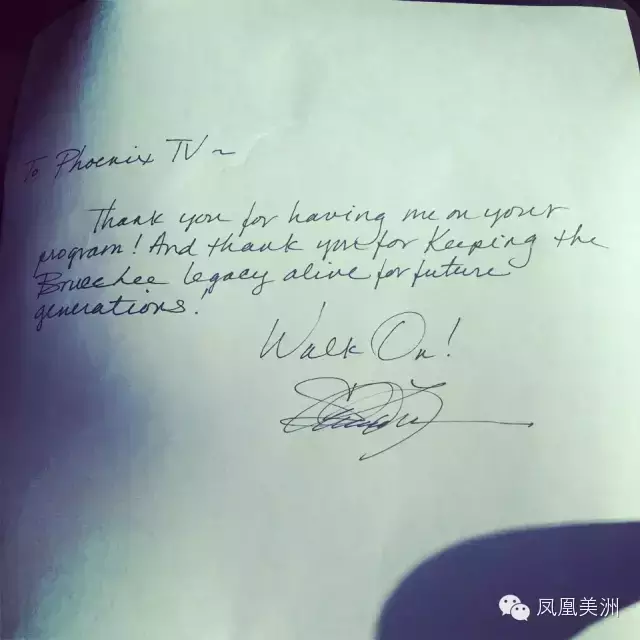 To Phoenix TV ~
Thank you for having me on your
program! And thank you for Keeping the
Bruce Lee legacy alive for future
generations!
Walk On!
凤凰美洲